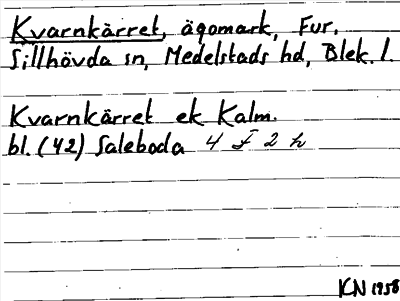 Kvarnkärret, ägomark, Fur,
Sillhövda sn, Medelstads hd, Blek. l.
Kvarnkärret ek Kalm.
bl. (42) Saleboda 4 F 2 h
KN 1958